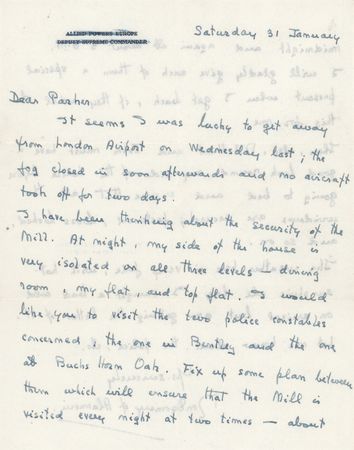 ALLIED POWERS EUROPE
DEPUTY SUPREME COMMANDER
Saturday 31 January
Dear Parker
It seems I was lucky to get away
from London Airport on Wednesday last; the
fog closed in soon afterwards and no aircraft
took off for two days.
I have been thinking about the security of the
Mill. At night, my side of the house is
very isolated on all three levels – dining
room, my flat, and top flat. I would
like you to visit the two police constables
concerned, the one in Bentley and the one
at Buchs Horn Oak. Fix up some plan between
them which will ensure that the Mill is
visited every night at two times – about